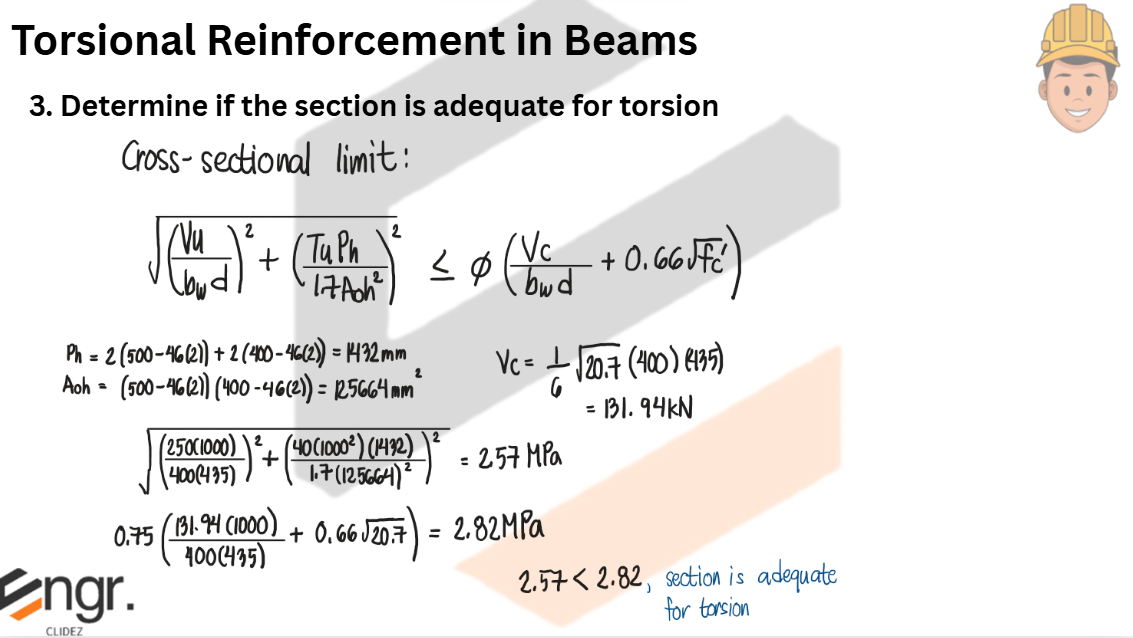 Torsional Reinforcement in Beams
3. Determine if the section is adequate for torsion
Cross-sectional limit:
√((Vu/bwd)² + (TuPh/1.7Aoh²)²) ≤ φ(Vc/bwd + 0.66√fc')
Ph = 2(500-46(2)) + 2(400-46(2)) = 1432mm
Aoh = (500-46(2))(400-46(2)) = 125664mm²
Vc = 1/6 √20.7 (400)(435)
= 131.94kN
√((250(1000)/400(435))² + (40(1000²)(1432)/1.7(125664)²)²) = 2.57 MPa
0.75(131.94(1000)/400(435) + 0.66√20.7) = 2.82MPa
2.57 < 2.82, section is adequate
for torsion
Engr.
CLIDEZ